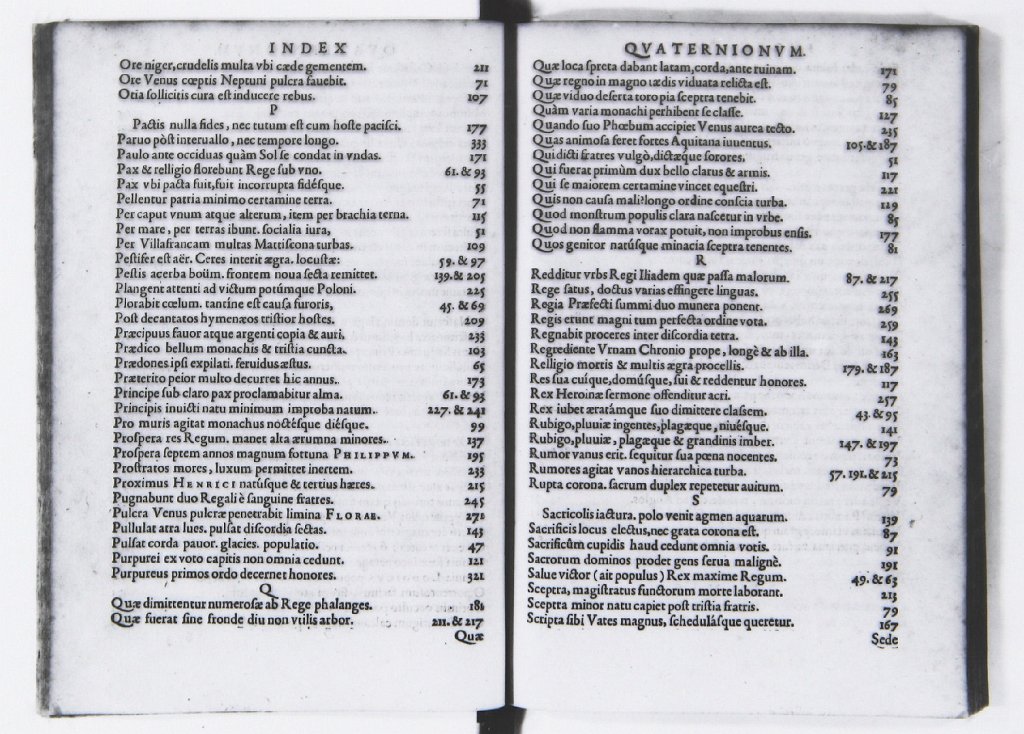 INDEX
Ore niger, crudelis multa vbi cæde gementem. 211
Ore Venus cœptis Neptuni pulcra fauebit. 71
Otia sollicitis cura est inducere rebus. 107
P
Pactis nulla fides, nec tutum est cum hoste pacisci. 177
Paruo pòst interuallo, nec tempore longo. 333
Paulo ante occiduas quàm Sol se condat in vndas. 171
Pax & relligio florebunt Rege sub vno. 61. & 93
Pax vbi pacta fuit, fuit incorrupta fidésque. 55
Pellentur patria minimo certamine terra. 71
Per caput vnum atque alterum, item per brachia terna. 115
Per mare, per terras ibunt. socialia iura, 51
Per Villafrancam multas Mattiscona turbas. 109
Pestifer est aër. Ceres interit ægra. locustæ: 59. & 97
Pestis acerba boüm. frontem noua secta remittet. 139. & 205
Plangent attenti ad victum potúmque Poloni. 225
Plorabit cœlum. tantíne est causa furoris, 45. & 69
Post decantatos hymenæos tristior hostes. 209
Præcipuus fauor atque argenti copia & auri. 233
Prædico bellum monachis & tristia cuncta. 103
Prædones ipsi expilati. feruidus æstus. 65
Præterito peior multo decurret hic annus. 173
Principe sub claro pax proclamabitur alma. 61. & 93
Principis inuicti natu minimum improba natum. 227. & 241
Pro muris agitat monachus noctésque diésque. 99
Prospera res Regum. manet alta ærumna minores. 137
Prospera septem annos magnum fortuna PHILIPPVM. 195
Prostratos mores, luxum permittet inertem. 233
Proximus HENRICI natúsque & tertius hæres. 215
Pugnabunt duo Regali è sanguine fratres. 245
Pulcra Venus pulcræ penetrabit limina FLORAE. 271
Pullulat atra lues. pulsat discordia sectas. 143
Pulsat corda pauor. glacies. populatio. 47
Purpurei ex voto capitis non omnia cedunt. 121
Purpureus primos ordo decernet honores. 321
Q
Quæ dimittentur numerosæ ab Rege phalanges. 181
Quæ fuerat sine fronde diu non vtilis arbor. 211. & 217
Quæ
QVATERNIONVM.
Quæ loca spreta dabant latam, corda, ante ruinam. 171
Quæ regno in magno tædis viduata relicta est. 79
Quæ viduo deserta toro pia sceptra tenebit. 85
Quàm varia monachi perhibent se classe. 127
Quando suo Phœbum accipiet Venus aurea tecto. 235
Quas animosa feret fortes Aquitana iuuentus. 105. & 187
Qui dicti fratres vulgò, dictæque sorores. 51
Qui fuerat primùm dux bello clarus & armis. 117
Qui se maiorem certamine vincet equestri. 221
Quis non causa mali? longo ordine conscia turba. 129
Quod monstrum populis clara nascetur in vrbe. 85
Quod non flamma vorax potuit, non improbus ensis. 177
Quos genitor natúsque minacia sceptra tenentes. 81
R
Redditur vrbs Regi Iliadem quæ passa malorum. 87. & 217
Rege satus, doctus varias effingere linguas. 255
Regia Præfecti summi duo munera ponent. 269
Regis erunt magni tum perfecta ordine vota. 259
Regnabit proceres inter discordia tetra. 143
Regrediente Vrnam Chronio prope, longè & ab illa. 163
Relligio mortis & multis ægra procellis. 179. & 187
Res sua cuíque, domúsque, sui & reddentur honores. 117
Rex Heroinæ sermone offenditur acri. 257
Rex iubet æratámque suo dimittere classem. 43. & 95
Rubigo, pluuiæ ingentes, plagæque, niuésque. 141
Rubigo, pluuiæ, plagæque & grandinis imber. 147. & 197
Rumor vanus erit. sequitur sua pœna nocentes. 73
Rumores agitat vanos hierarchica turba. 57. 191. & 215
Rupta corona. sacrum duplex repetetur auitum. 79
S
Sacricolis iactura. polo venit agmen aquarum. 139
Sacrificis locus electus, nec grata corona est. 87
Sacrificûm cupidis haud cedunt omnia votis. 91
Sacrorum dominos prodet gens serua malignè. 191
Salue victor (ait populus) Rex maxime Regum. 49. & 63
Sceptra, magistratus functorum morte laborant. 213
Sceptra minor natu capiet post tristia fratris. 79
Scripta sibi Vates magnus, schedulásque queretur. 167
Sede